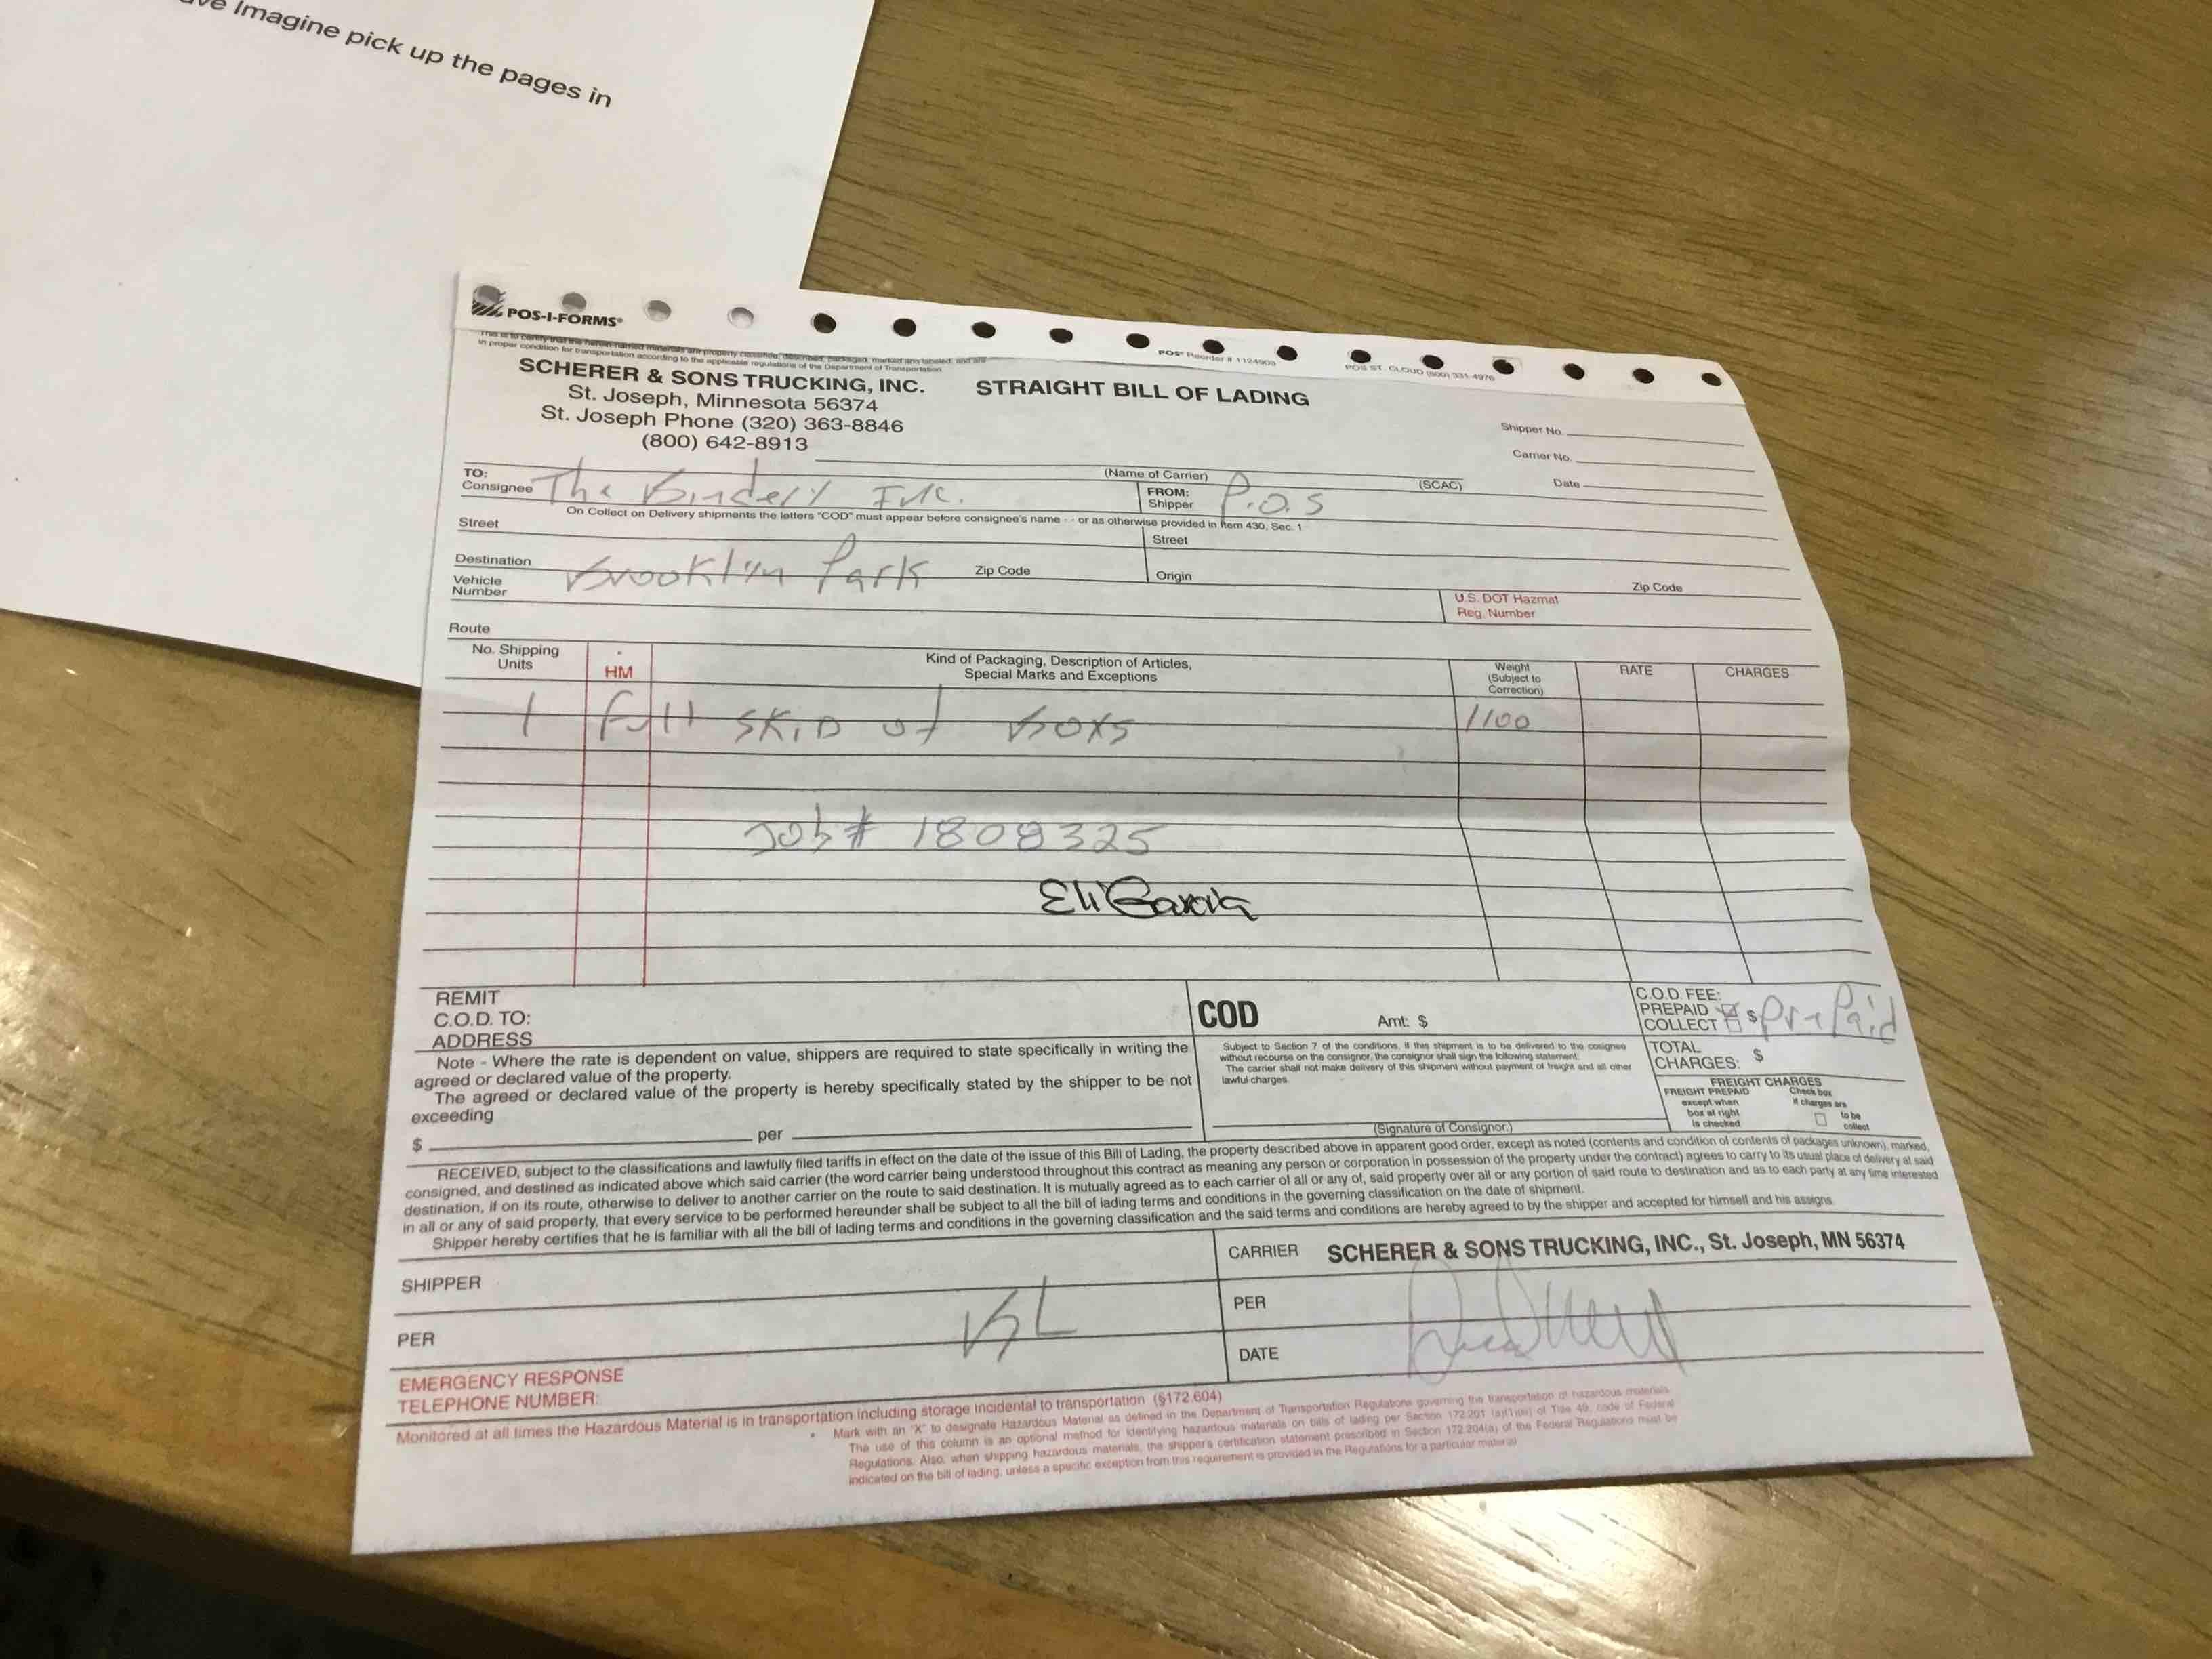 ve Imagine pick up the pages in
POS-I-FORMS®
This is to certify that the herein-named materials are properly classified, described, packaged, marked and labeled, and are
in proper condition for transportation according to the applicable regulations of the Department of Transportation.
POS® Reorder # 1124903
POS ST. CLOUD (800) 331-4976
SCHERER & SONS TRUCKING, INC.
St. Joseph, Minnesota 56374
St. Joseph Phone (320) 363-8846
(800) 642-8913
STRAIGHT BILL OF LADING
Shipper No.
Carrier No.
Date
(Name of Carrier)
(SCAC)
TO:
Consignee The Bindery Inc.
FROM:
Shipper P.O.S
On Collect on Delivery shipments the letters "COD" must appear before consignee's name - - or as otherwise provided in Item 430, Sec. 1
Street
Street
Destination Brooklyn Park Zip Code
Origin Zip Code
Vehicle
Number
U.S. DOT Hazmat
Reg. Number
Route
No. Shipping
Units
*
HM
Kind of Packaging, Description of Articles,
Special Marks and Exceptions
Weight
(Subject to
Correction)
RATE
CHARGES
1 full SKID of boxs 1100
Job# 1808325
Eli Garcia
REMIT
C.O.D. TO:
ADDRESS
COD Amt: $
C.O.D. FEE:
PREPAID
COLLECT $ PrePaid
Note - Where the rate is dependent on value, shippers are required to state specifically in writing the
agreed or declared value of the property.
The agreed or declared value of the property is hereby specifically stated by the shipper to be not
exceeding
$ per
Subject to Section 7 of the conditions, if this shipment is to be delivered to the cosignee
without recourse on the consignor, the consignor shall sign the following statement:
The carrier shall not make delivery of this shipment without payment of freight and all other
lawful charges.
(Signature of Consignor.)
TOTAL
CHARGES: $
FREIGHT CHARGES
FREIGHT PREPAID
except when
box at right
is checked
Check box
if charges are
to be
collect
RECEIVED, subject to the classifications and lawfully filed tariffs in effect on the date of the issue of this Bill of Lading, the property described above in apparent good order, except as noted (contents and condition of contents of packages unknown), marked,
consigned, and destined as indicated above which said carrier (the word carrier being understood throughout this contract as meaning any person or corporation in possession of the property under the contract) agrees to carry to its usual place of delivery at said
destination, if on its route, otherwise to deliver to another carrier on the route to said destination. It is mutually agreed as to each carrier of all or any of, said property over all or any portion of said route to destination and as to each party at any time interested
in all or any of said property, that every service to be performed hereunder shall be subject to all the bill of lading terms and conditions in the governing classification on the date of shipment.
Shipper hereby certifies that he is familiar with all the bill of lading terms and conditions in the governing classification and the said terms and conditions are hereby agreed to by the shipper and accepted for himself and his assigns.
SHIPPER
CARRIER SCHERER & SONS TRUCKING, INC., St. Joseph, MN 56374
PER
PER
DATE
EMERGENCY RESPONSE
TELEPHONE NUMBER:
Monitored at all times the Hazardous Material is in transportation including storage incidental to transportation (§172.604)
* Mark with an "X" to designate Hazardous Material as defined in the Department of Transportation Regulations governing the transportation of hazardous materials.
The use of this column is an optional method for identifying hazardous materials on bills of lading per Section 172.201 (a)(1)(iii) of Title 49, code of Federal
Regulations. Also, when shipping hazardous materials, the shipper's certification statement prescribed in Section 172.204(a) of the Federal Regulations must be
indicated on the bill of lading, unless a specific exception from this requirement is provided in the Regulations for a particular material.